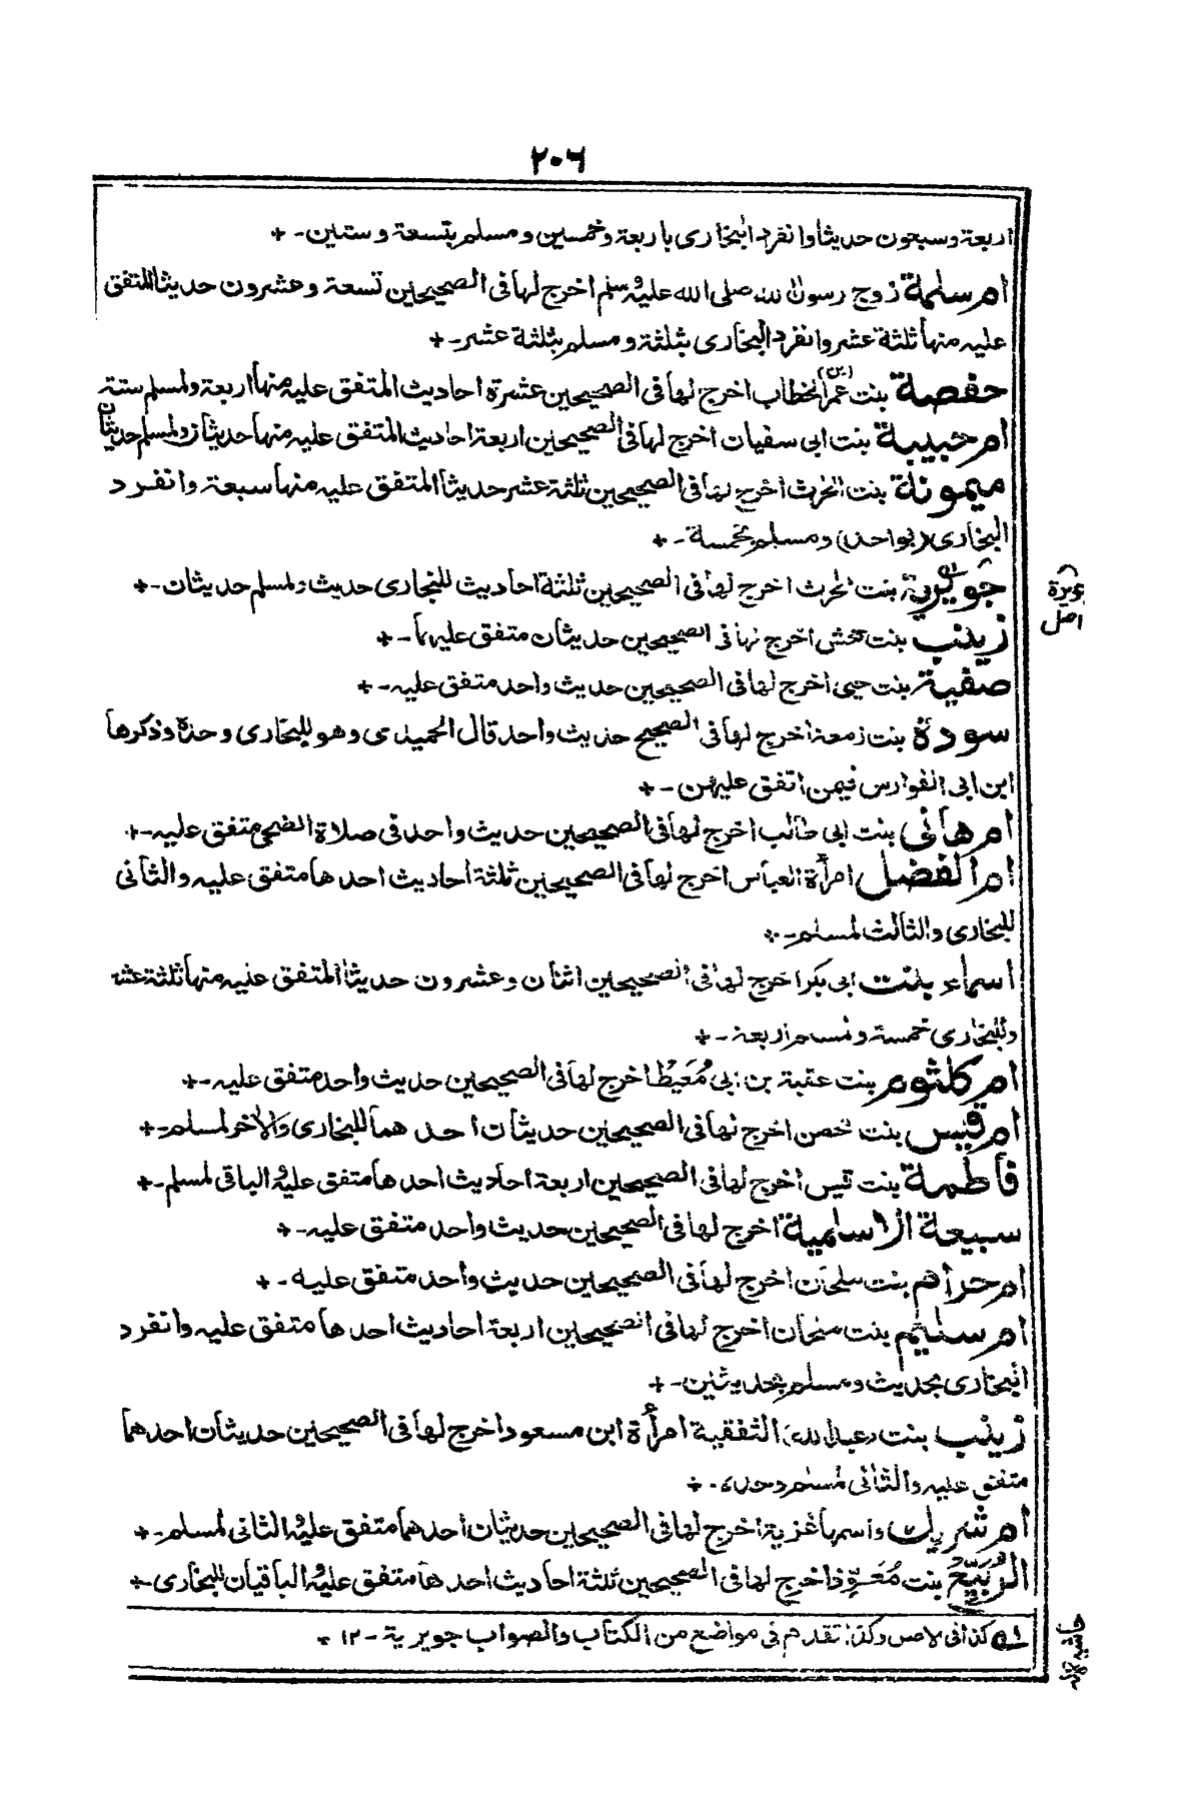 ٢٠٦
اربعة وسبعون حديثا وانفرد البخارى باربعة وخمسين ومسلم بتسعة وستين ـ +
ام سلمة زوج رسول الله صلى الله عليه وسلم اخرج لها فى الصحيحين تسعة وعشرون حديثا المتفق
عليه منها ثلثة عشر وانفرد البخارى بثلثة ومسلم بثلثة عشر ـ +
حفصة بنت عمر (بن) الخطاب اخرج لها فى الصحيحين عشرة احاديث المتفق عليه منها اربعة ولمسلم ستة
ام حبيبة بنت ابى سفيان اخرج لها فى الصحيحين اربعة احاديث المتفق عليه منها حديثان ولمسلم حديثان
ميمونة بنت الحرث اخرج لها فى الصحيحين ثلثة عشر حديثا المتفق عليه منها سبعة وانفرد
البخارى (بواحد) ومسلم بخمسة ـ +
جويرية بنت الحرث اخرج لها فى الصحيحين ثلثة احاديث للبخارى حديث ولمسلم حديثان ـ +
زينب بنت جحش اخرج لها فى الصحيحين حديثان متفق عليهما ـ +
صفية بنت حيى اخرج لها فى الصحيحين حديث واحد متفق عليه ـ +
سودة بنت زمعة اخرج لها فى الصحيح حديث واحد قال الحميدى وهو للبخارى وحده وذكرها
ابن ابى الفوارس فيمن اتفق عليهن ـ +
ام هانى بنت ابى طالب اخرج لها فى الصحيحين حديث واحد فى صلاة الضحى متفق عليه ـ +
ام الفضل امرأة العباس اخرج لها فى الصحيحين ثلثة احاديث احدها متفق عليه والثانى
للبخارى والثالث لمسلم ـ +
اسماء بنت ابى بكر اخرج لها فى الصحيحين اثنان وعشرون حديثا المتفق عليه منها ثلثة عشر
وللبخارى خمسة ولمسلم اربعة ـ +
ام كلثوم بنت عقبة بن ابى مُعَيْط اخرج لها فى الصحيحين حديث واحد متفق عليه ـ +
ام قيس بنت محصن اخرج لها فى الصحيحين حديثان احدهما للبخارى والآخر لمسلم ـ +
فاطمة بنت قيس اخرج لها فى الصحيحين اربعة احاديث احدها متفق عليه والباقى لمسلم ـ +
سبيعة الاسلمية اخرج لها فى الصحيحين حديث واحد متفق عليه ـ +
ام حرام بنت ملحان اخرج لها فى الصحيحين حديث واحد متفق عليه ـ +
ام سليم بنت ملحان اخرج لها فى الصحيحين اربعة احاديث احدها متفق عليه وانفرد
البخارى بحديث ومسلم بحديثين ـ +
زينب بنت (عبد الله) الثقفية امرأة ابن مسعود اخرج لها فى الصحيحين حديثان احدهما
متفق عليه والثانى لمسلم وحده ـ +
ام شريك واسمها غزية اخرج لها فى الصحيحين حديثان احدهما متفق عليه والثانى لمسلم ـ +
الرُّبَيِّعُ بنت مُعَوِّذ اخرج لها فى الصحيحين ثلثة احاديث احدها متفق عليه والباقيان للبخارى ـ +
جويرة
اصل
١ كذا فى الاصل وكذا تقدم فى مواضع من الكتاب والصواب جويرية ـ ١٢ +